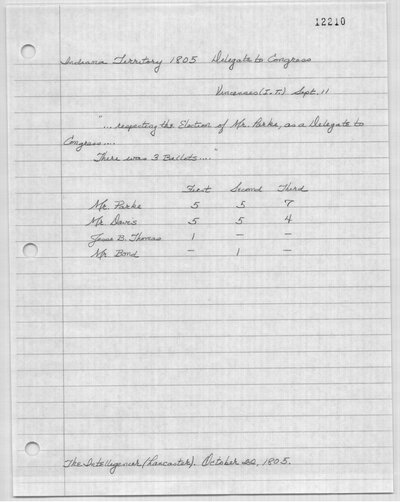 12210
Indiana Territory 1805 Delegate to Congress
Vincennes (I.T.) Sept. 11
"... respecting the Election of Mr. Parke, as a Delegate to
Congress....
There was 3 Ballots...."
First Second Third
Mr. Parke 5 5 7
Mr. Davis 5 5 4
Jesse B. Thomas 1 — —
Mr. Bond — 1 —
The Intelligencer (Lancaster). October 22, 1805.